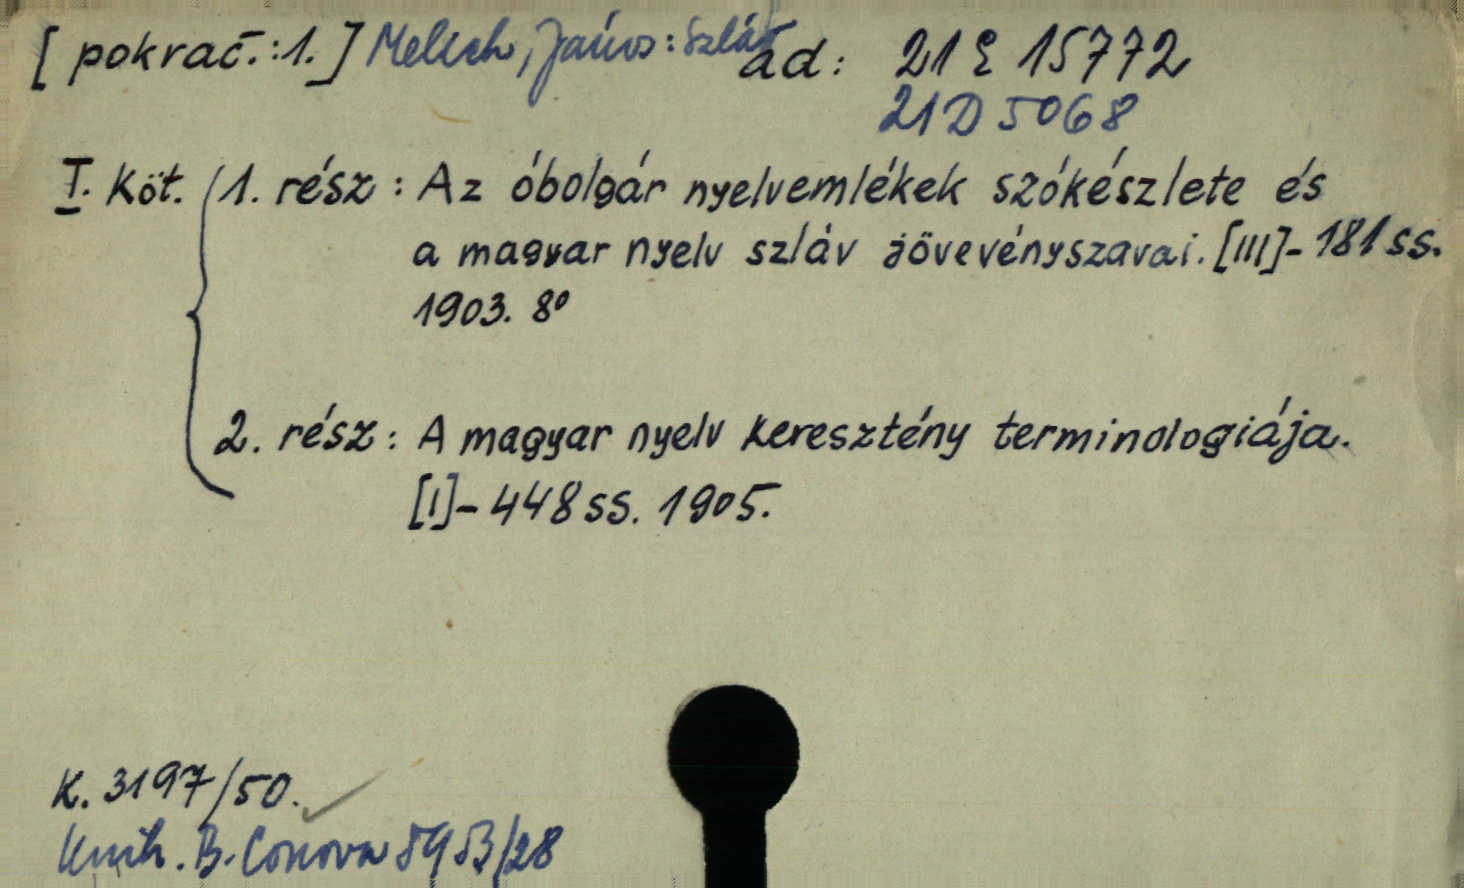 [pokrač.:1.] Melich, János: Szláv ad: 21 E 15772
21 D 5068
I. Köt. 1. rész: Az óbolgár nyelvemlékek szókészlete és
a magyar nyelv szláv jövevényszavai. [III]-181 ss.
1903. 8°
2. rész: A magyar nyelv keresztény terminologiája.
[I]-448 ss. 1905.
K. 3197/50.
Knih. B. Conova